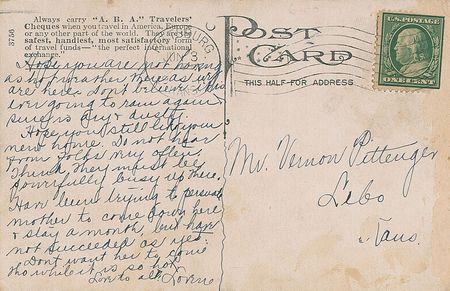 3756
Always carry "A. B. A." Travelers'
Cheques when you travel in America, Europe
or any other part of the world. They are the
safest, handiest, most satisfactory form
of travel funds—"the perfect international
exchange."
Hope you are not having
as hot weather there as we
are here. Don't believe it is
ever going to rain again
sure is dry & dusty.
Hope you still like your
new home. Do not hear
from folks very often
Think they must be
powerfully busy up there.
Have been trying to persuade
mother to come down here
& stay a month, but have
not succeeded as yet.
Dont want her to come
tho while it is so hot.
Love to all,
POST
CARD
THIS HALF FOR ADDRESS
U.S. POSTAGE
ONE CENT
Mr. Vernon Pittenger
Lebo
Kans.